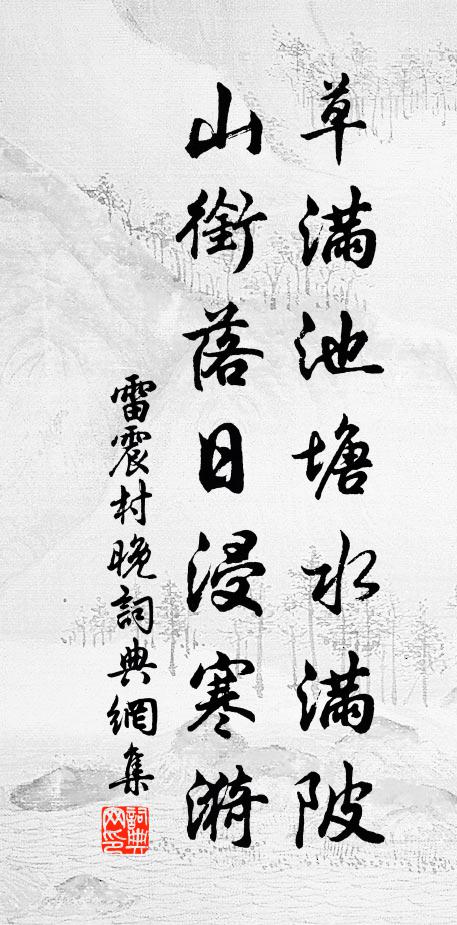 草滿池塘水滿陂
山銜落日浸寒漪
雷震村晚詞典網集
詞典網印